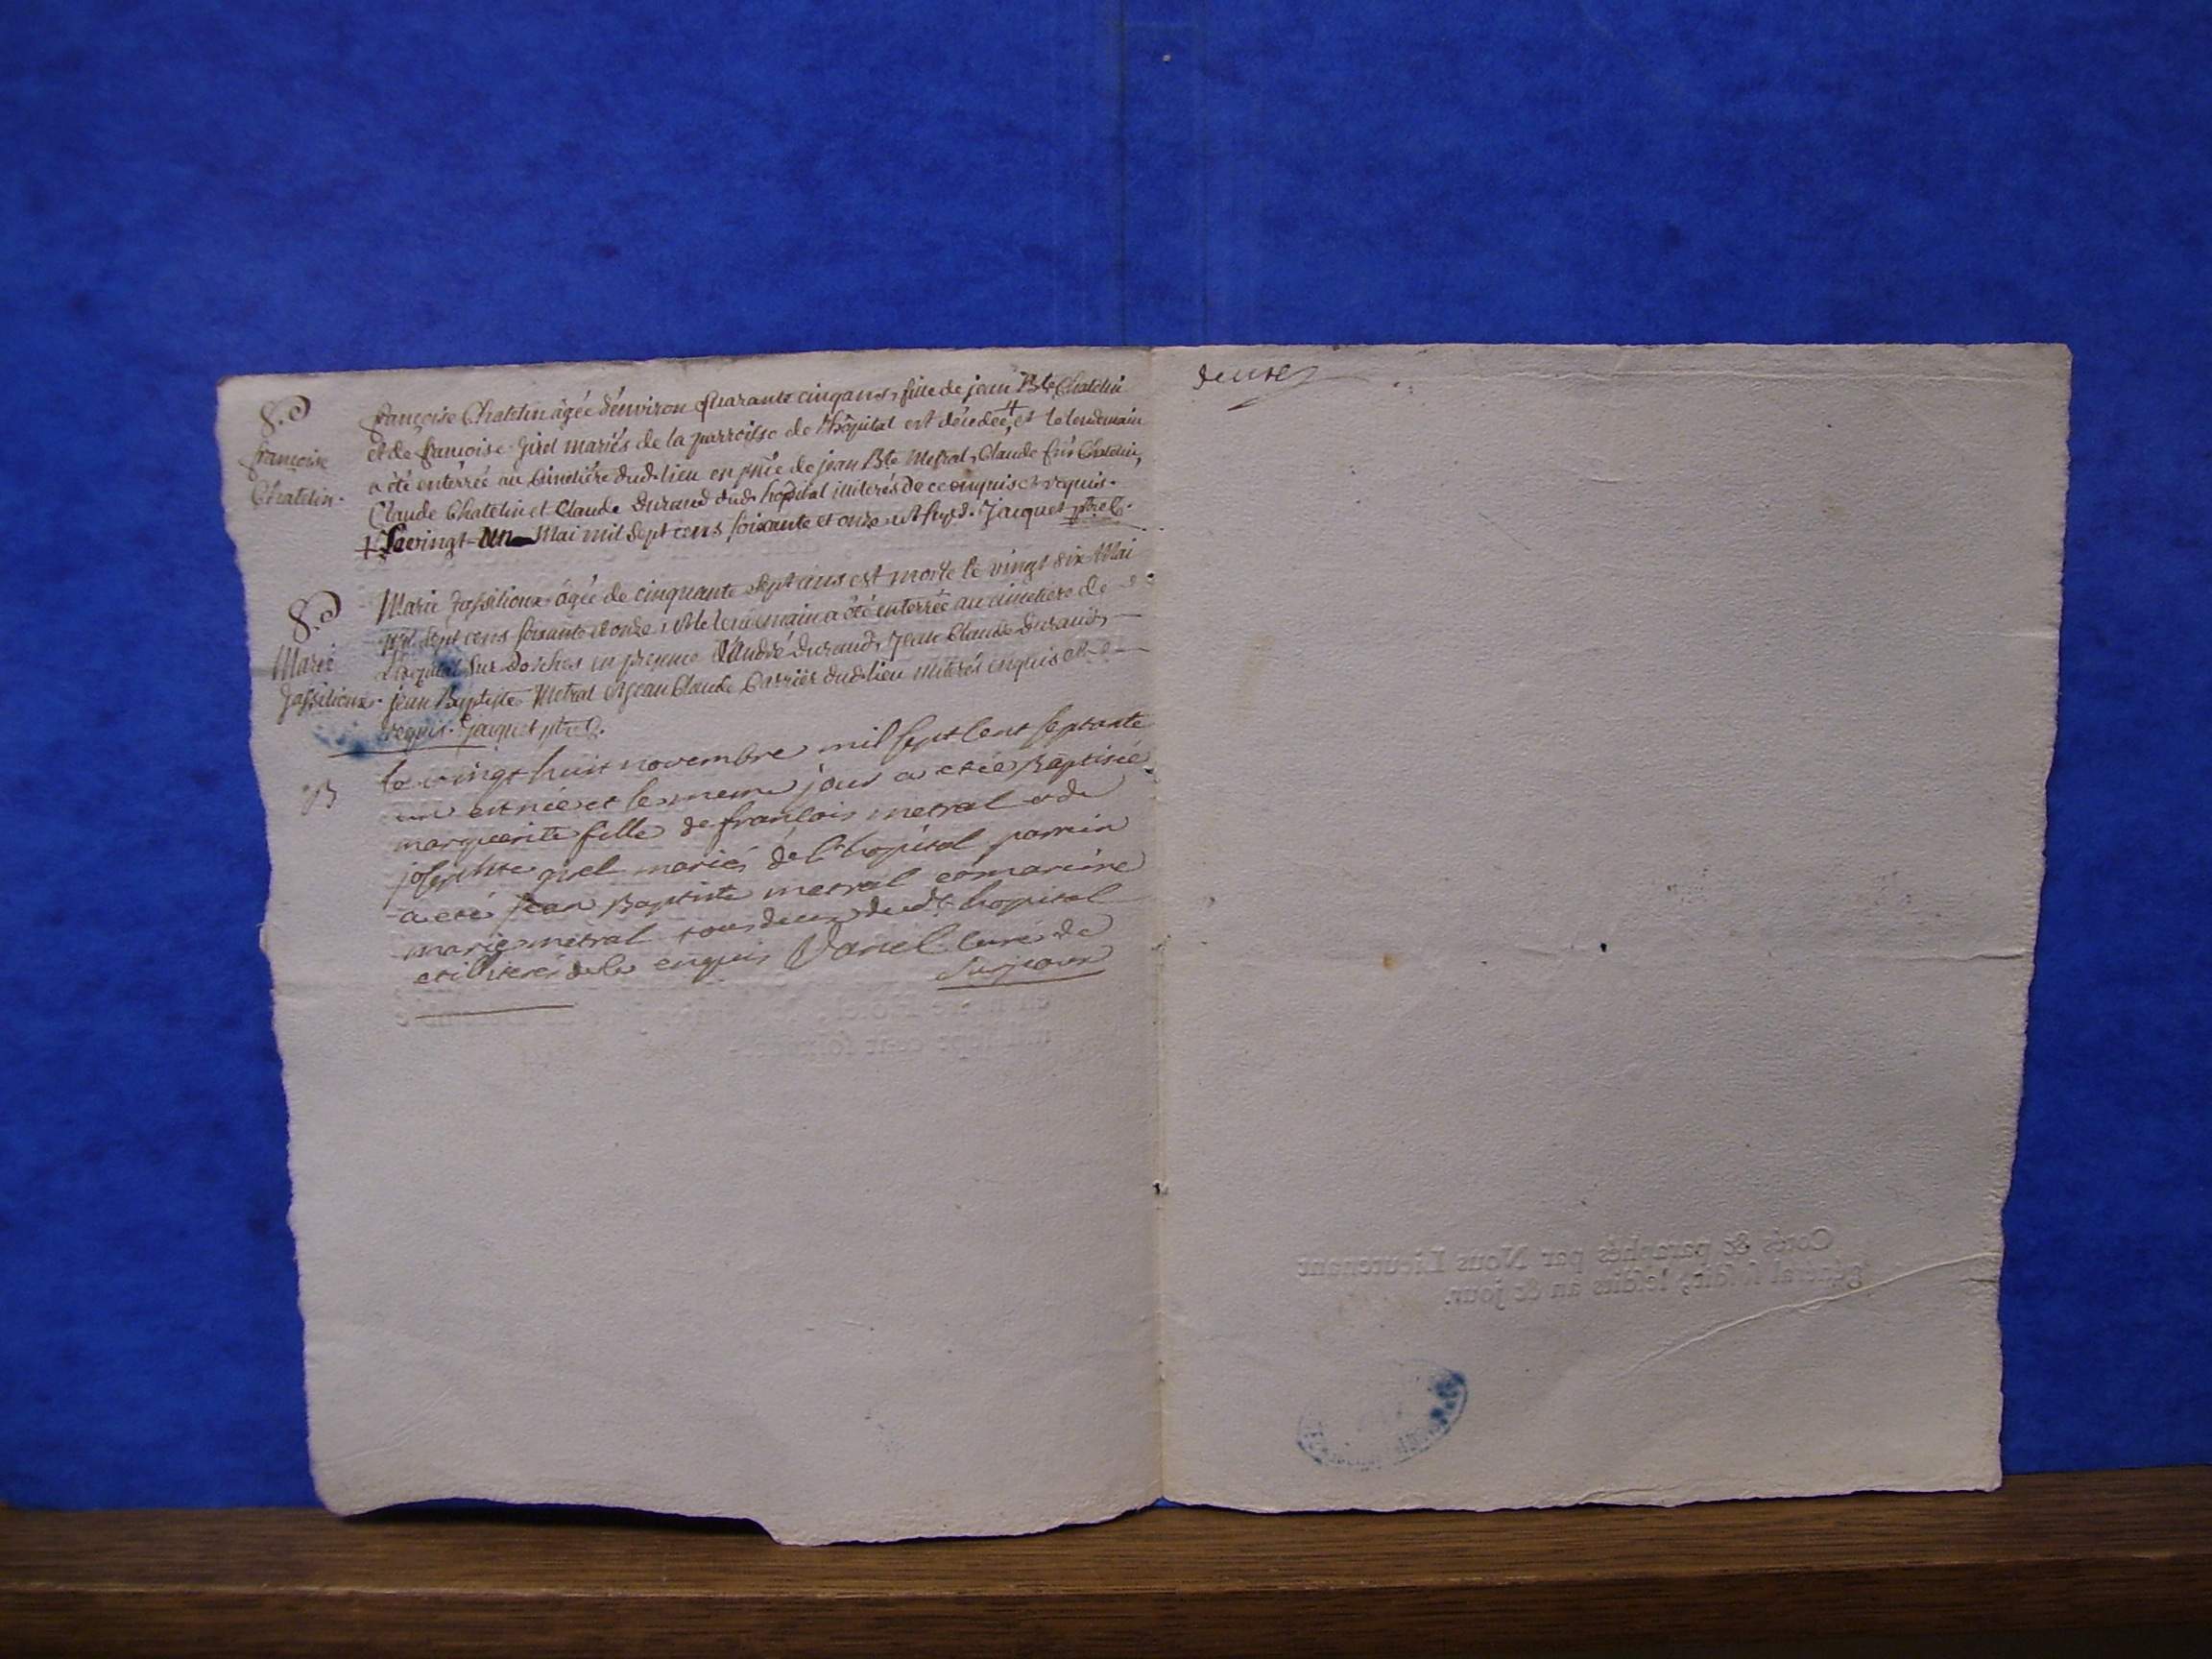 S.
françoise
Chatelin.
françoise Chatelin âgée d'environ quarante cinq ans, fille de jean Bte Chatelin
et de françoise girel mariés de la parroisse de l'hôpital est décédée ‡, et le lendemain
a été enterrée au cimetière dud. lieu en pñce de jean Bte Metral, Claude fris Chatelin,
Claude Chatelin et Claude Durand dud. hopital illiterés de ce enquis et requis.
‡ Le vingt-un Mai mil sept cens soixante et onze Jacquet ptre C.
S.
Marie
Jassilioux.
Marie Jassilioux âgée de cinquante sept ans est morte le vingt six Mai
mil sept cens soixante et onze, et le lendemain a été enterrée au cimetière de
L'hopital sur Dorches en presence d'André Durand, Jean Claude Durand,
jean Baptiste Metral et jean Claude Carrier dud. lieu illiterés enquis et
requis. Jacquet ptre C.
B
le vingt huit novembre mil sept cent septante
un est née et le meme jour a etée Baptisée
marguerite fille de francois metral et de
josephte girel mariés de l'hopital parrein
a eté jean Baptiste metral et mareine
marie metral tous deux dudt hopital
et illiterés de ce enquis Vanel curé de
Surjoux
deuxe
Cotés & paraphés par Nous Lieutenant
général susdit, lesdits an & jour.